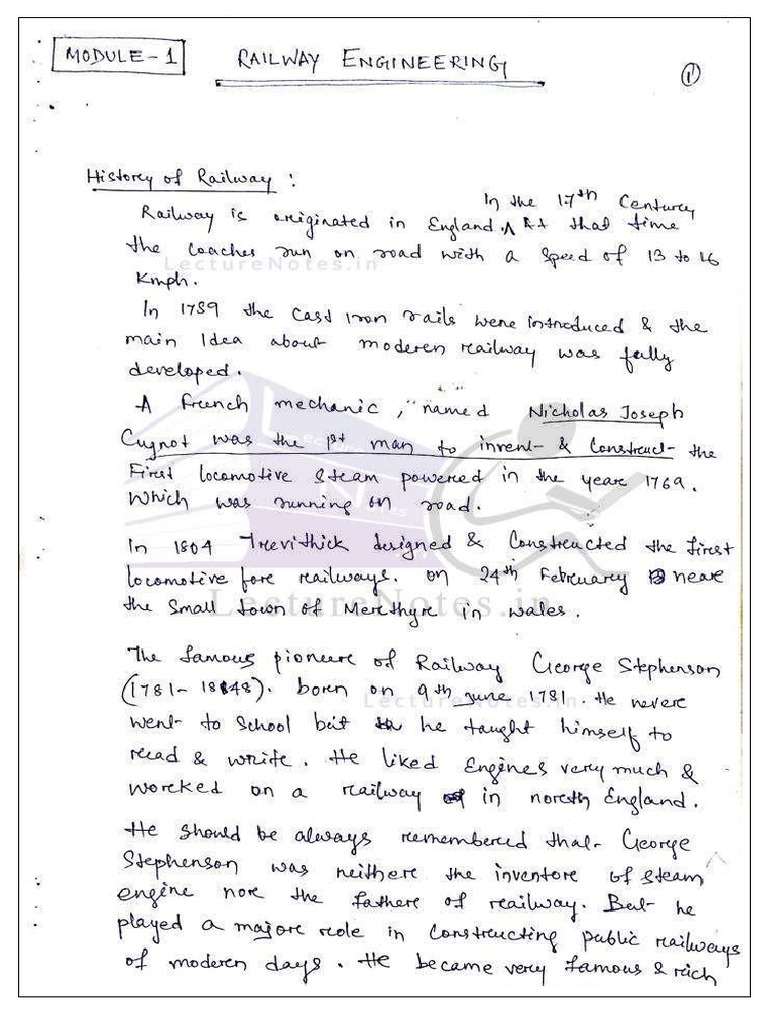 MODULE-1 RAILWAY ENGINEERING 1
History of Railway :
In the 17th Century
Railway is originated in England. ^ At that time
the coaches run on road with a speed of 13 to 16
LectureNotes.in
Kmph.
In 1789 the Cast Iron rails were introduced & the
main Idea about moderen railway was fully
developed.
A French mechanic, named Nicholas Joseph
Cugnot was the 1st man to invent & Construct the
First locomotive steam powered in the year 1769.
Which was running on road.
In 1804 Treevithick designed & Constructed the first
locomotive fore railways. on 24th February neare
LectureNotes.in
the small town of Merethyre in wales.
The famous pioneere of Railway George Stephenson
(1781-1848). born on 9th june 1781. He nevere
LectureNotes.in
went to School but he taught himself to
read & write. He liked Engines very much &
worcked on a railway in noreth England.
He should be always remembered that George
Stephenson was neithere the inventore of steam
engine nore the fathere of reailway. But he
played a majore role in Constructing public railways
of moderen days. He became very famous & rich